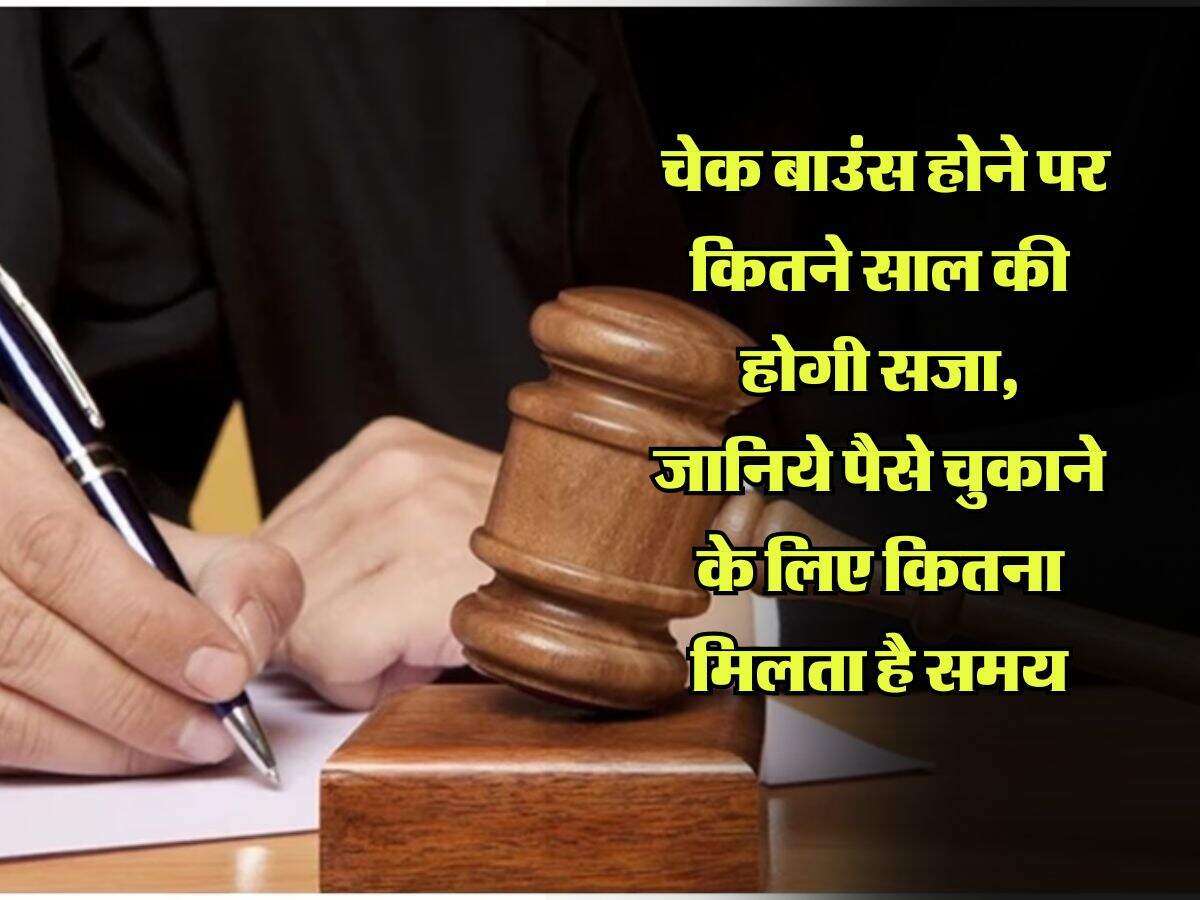 चेक बाउंस होने पर
कितने साल की
होगी सजा,
जानिये पैसे चुकाने
के लिए कितना
मिलता है समय